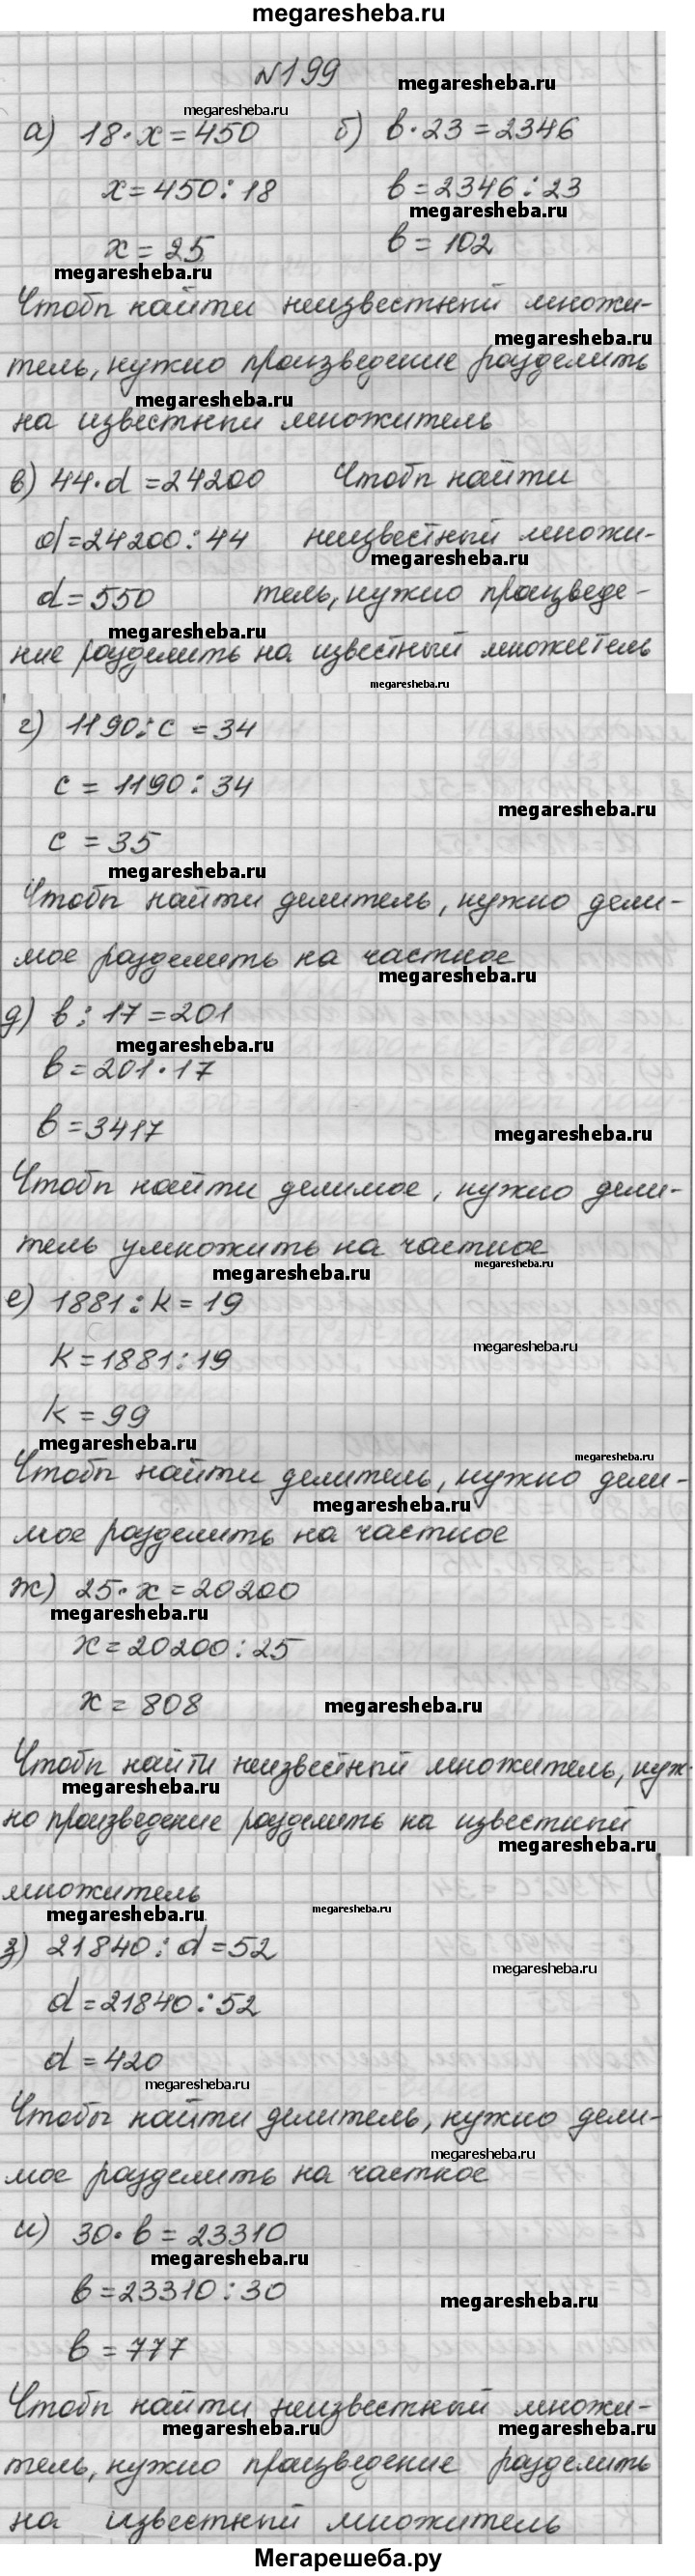 megaresheba.ru
№199
megaresheba.ru
megaresheba.ru
а) 18·x=450 б) в·23=2346
x=450:18 в=2346:23
megaresheba.ru
x=25 в=102
megaresheba.ru
Чтобы найти неизвестный множи-
megaresheba.ru
тель, нужно произведение разделить
megaresheba.ru
на известный множитель
в) 44·d=24200 Чтобы найти
d=24200:44 неизвестный множи-
megaresheba.ru
d=550 тель, нужно произведе-
megaresheba.ru
ние разделить на известный множитель
megaresheba.ru
г) 1190:с=34
с=1190:34
megaresheba.ru
с=35
megaresheba.ru
Чтобы найти делитель, нужно дели-
мое разделить на частное
megaresheba.ru
д) в:17=201
megaresheba.ru
в=201·17
в=3417
megaresheba.ru
Чтобы найти делимое, нужно дели-
тель умножить на частное
megaresheba.ru
megaresheba.ru
е) 1881:к=19
megaresheba.ru
к=1881:19
к=99
megaresheba.ru
megaresheba.ru
Чтобы найти делитель, нужно дели-
megaresheba.ru
мое разделить на частное
ж) 25·x=20200
megaresheba.ru
x=20200:25
x=808
megaresheba.ru
Чтобы найти неизвестный множитель, нуж-
megaresheba.ru
но произведение разделить на известный
megaresheba.ru
множитель
megaresheba.ru
megaresheba.ru
з) 21840:d=52
megaresheba.ru
d=21840:52
d=420
megaresheba.ru
Чтобы найти делитель, нужно дели-
megaresheba.ru
мое разделить на частное
и) 30·в=23310
megaresheba.ru
в=23310:30
megaresheba.ru
в=777
Чтобы найти неизвестный множи-
megaresheba.ru
megaresheba.ru
тель, нужно произведение разделить
на известный множитель
Мегарешеба.ру